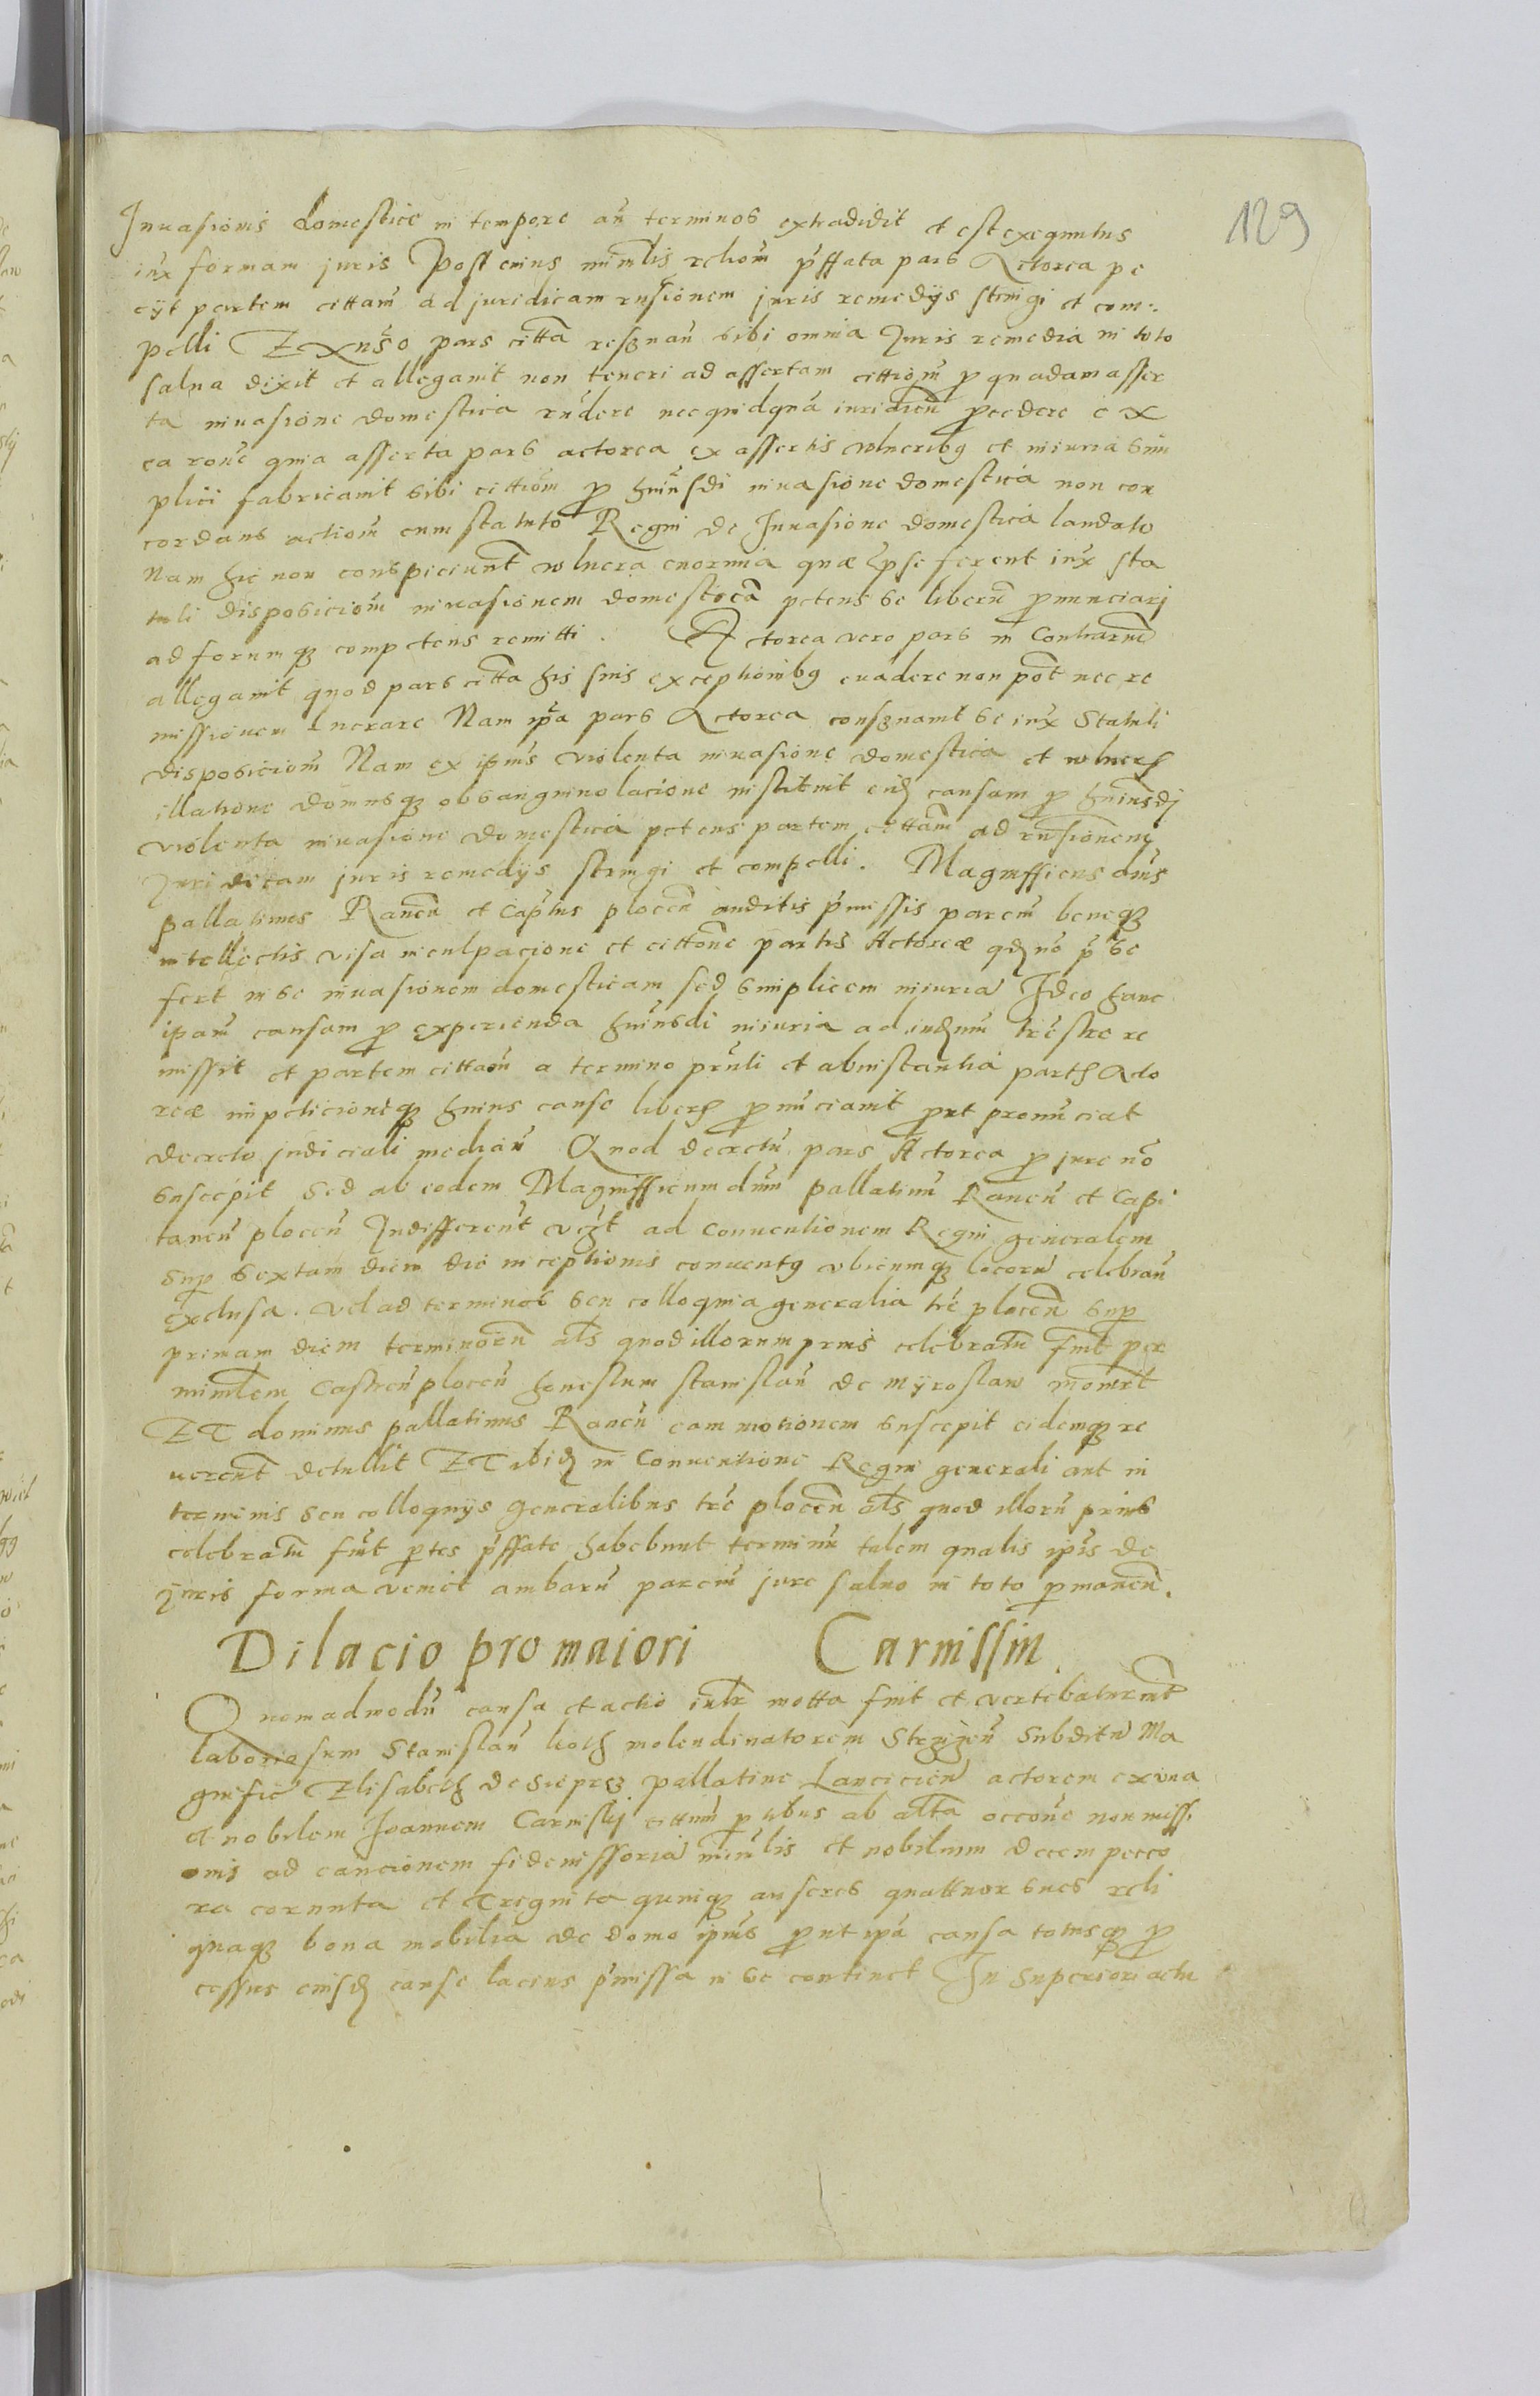 129
Inuasionis domestice in tempore an̄ terminos extradidit et est exequutus
iux̄ formam juris Post cuius minr̄lis rcliom̄ p̄ffata pars Actorea pe
cÿt partem cittam̄ ad juridicam rn̄sionem juris remedÿs stringi et com:
pelli Ex aduerso pars citta reseruan̄ sibi omnia Juris remedia in toto
salua dixit et allegauit non teneri ad assertam cittiom̄ p quadam asser
ta inuasione domestica rn̄dere nec quidqua iuridicū pcedere ex
ea rone quia asserta pars actorea ex assertis vulneribꝫ et iniuria sim
plici fabricauit sibi cittiom̄ p huiusdi inuasione domestica non con
cordans actiom̄ cum statuto Regni de Inuasione domestica laudato
Nam hic non conspiciunt̄ vulnera enormia quæ pse ferent iux̄ sta
tuti disposiciom̄ inuasionem domesticā petens se liberū pnunciarj
ad forumqꝫ competens remitti. Actorea vero pars in Contrariū
allegauit quod pars citta his suis exceptionibꝫ euadere non pot̄ nec re
missionem lucrare Nam ip̄a pars Actorea conseruauit se iux̄ Statuti
disposiciom̄ Nam ex ipius violenta inuasione domestica et vulneꝝ
illatione domusqꝫ obsanguinolacione instituit eidꝫ causam p huiusdj
violenta inuasione domestica petens partem cittam̄ ad rn̄sionem
Juridicam juris remedÿs stringi et compelli. Magnifficus dn̄s
pallatinus Rauen̄ et Cap̄tus plocen̄ auditis p̄missis parciū beneqꝫ
intellectis visa inculpacione et cittone partis Actoreæ qꝫ no p̄ se
fert in se inuasionem domesticam sed simplicem iniuria Ideo hanc
ipam̄ causam p experienda huiusdi iniuria ad iudiciū tr̄estre re
missit et partem cittam̄ a termino prn̄ti et ab instantia partꝭ Acto
reæ impeticioneqꝫ huius cause liberꝝ pnūciauit put pronuciat
decreto judiciali median̄ Quod decretū pars Actorea p jure no
suscepit Sed ab eodem Magnifficum dnm̄ pallatinū Rauen̄ et Capi
taneū plocen̄ Indifferent̄ ad Conuentionem Regni generalem
sup sextam diem die inceptionis conuentꝫ vbicumqꝫ locorū celebran̄
exclusa. vel ad terminos seu colloquia generalia tr̄e plocen̄ sup
primam diem terminorū al̄s quod illorum prius celebratū fuit per
minr̄lem Castren̄ plocen̄ honestum stanislaū de mÿroslaw mouit̄
ET dominus pallatinus Rauen̄ eam motionem suscepit eidemqꝫ re
uerent̄ detullit ET ibidꝫ in Conuentione Regni generali aut in
terminis seu colloquÿs generalibus tr̄e plocen̄ al̄s quod illorū prius
celebratū fuit ptes p̄ffate habebunt terminū talem qualis ipis de
juris forma veniet ambarū parciū jure saluo in toto pmanen̄.
Dilacio pro maiori Carnissin
Quemadmodū causa et actio intr̄ motta fuit et vertebatur int̄
laboriosum Stanislaū molendinatorem subditū Ma
gnific Elisabeth de Sieprcz pallatine Lancicien̄ actorem ex vna
et nobilem Joannem Carniskj cittum̄ ptibus ab alt̄a occone non missi
onis ad caucionem fideiussoria minr̄lis et nobilium decem peco
ra cornuta et trigintaquinqꝫ anseres quattuor sues reli
quaqꝫ bona mobilia de domo ipius put ipa causa totusqꝫ p
cessus eiusdꝫ cause lacius p̄missa in se continet In superiori actu